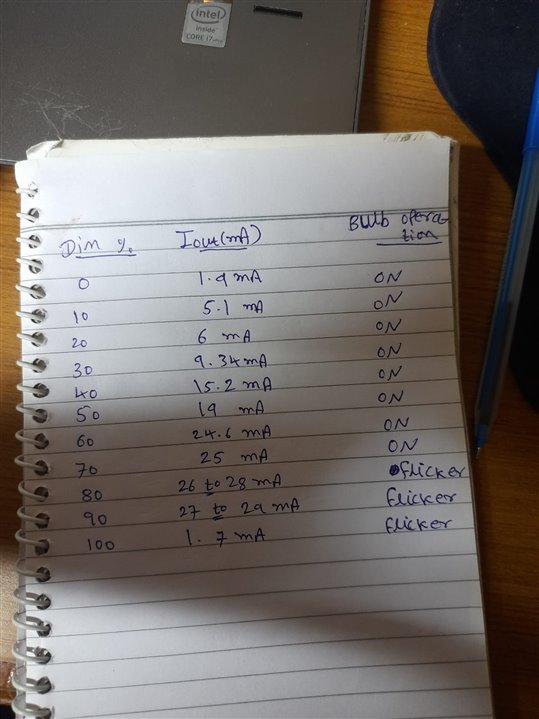 intel
inside
CORE i7
Dim % Iout(mA) Bulb opera-
tion
0 1.9 mA ON
10 5.1 mA ON
20 6 mA ON
30 9.34 mA ON
40 15.2 mA ON
50 19 mA ON
60 24.6 mA ON
70 25 mA ON
80 26 to 28 mA flicker
90 27 to 29 mA flicker
100 1.7 mA flicker